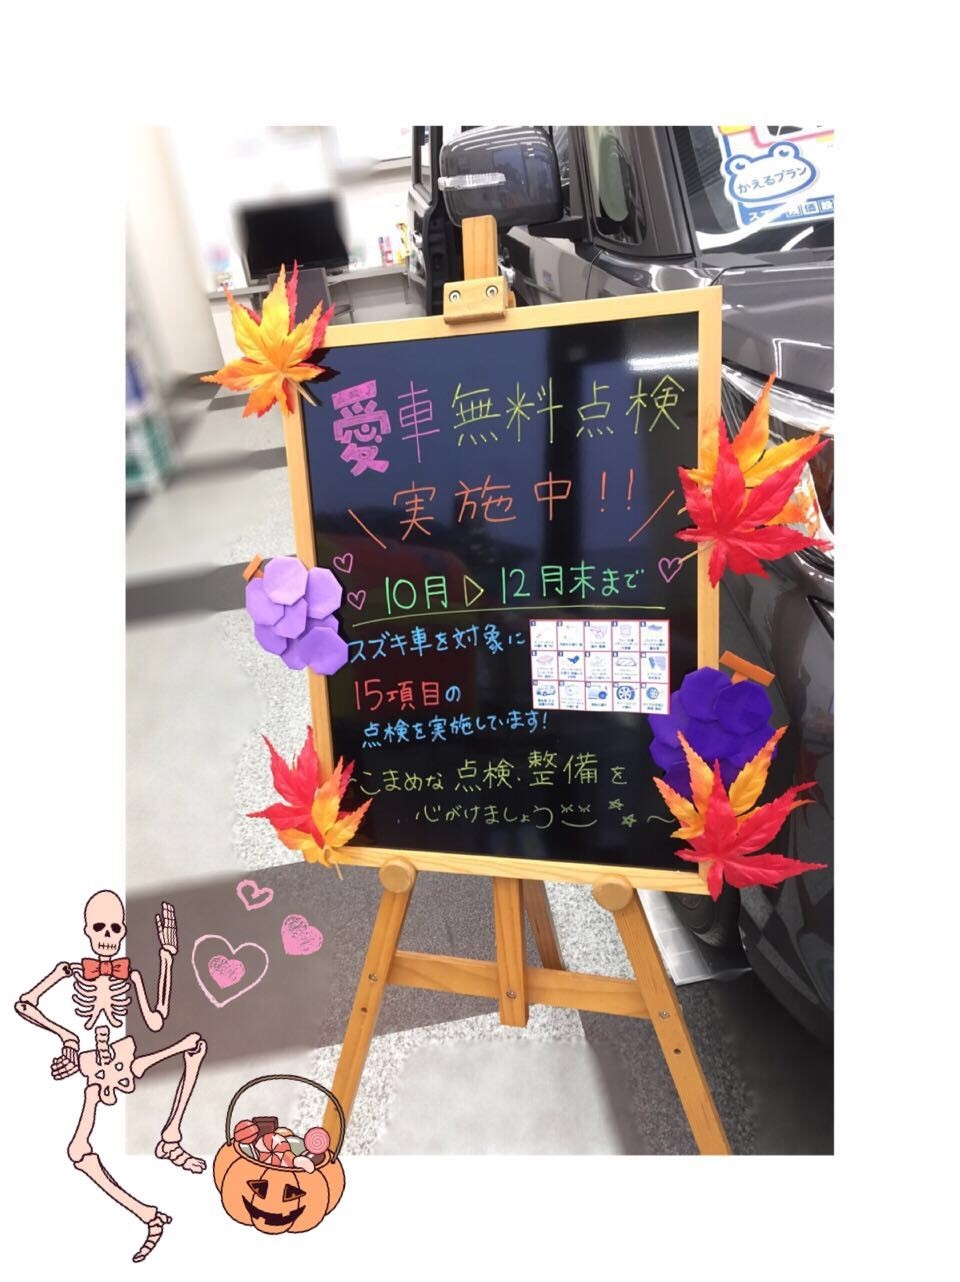 かえるプラン
愛車無料点検
＼実施中!!／
10月▷12月末まで
スズキ車を対象に
15項目の
点検を実施しています!
～こまめな点検、整備を
心がけましょう～